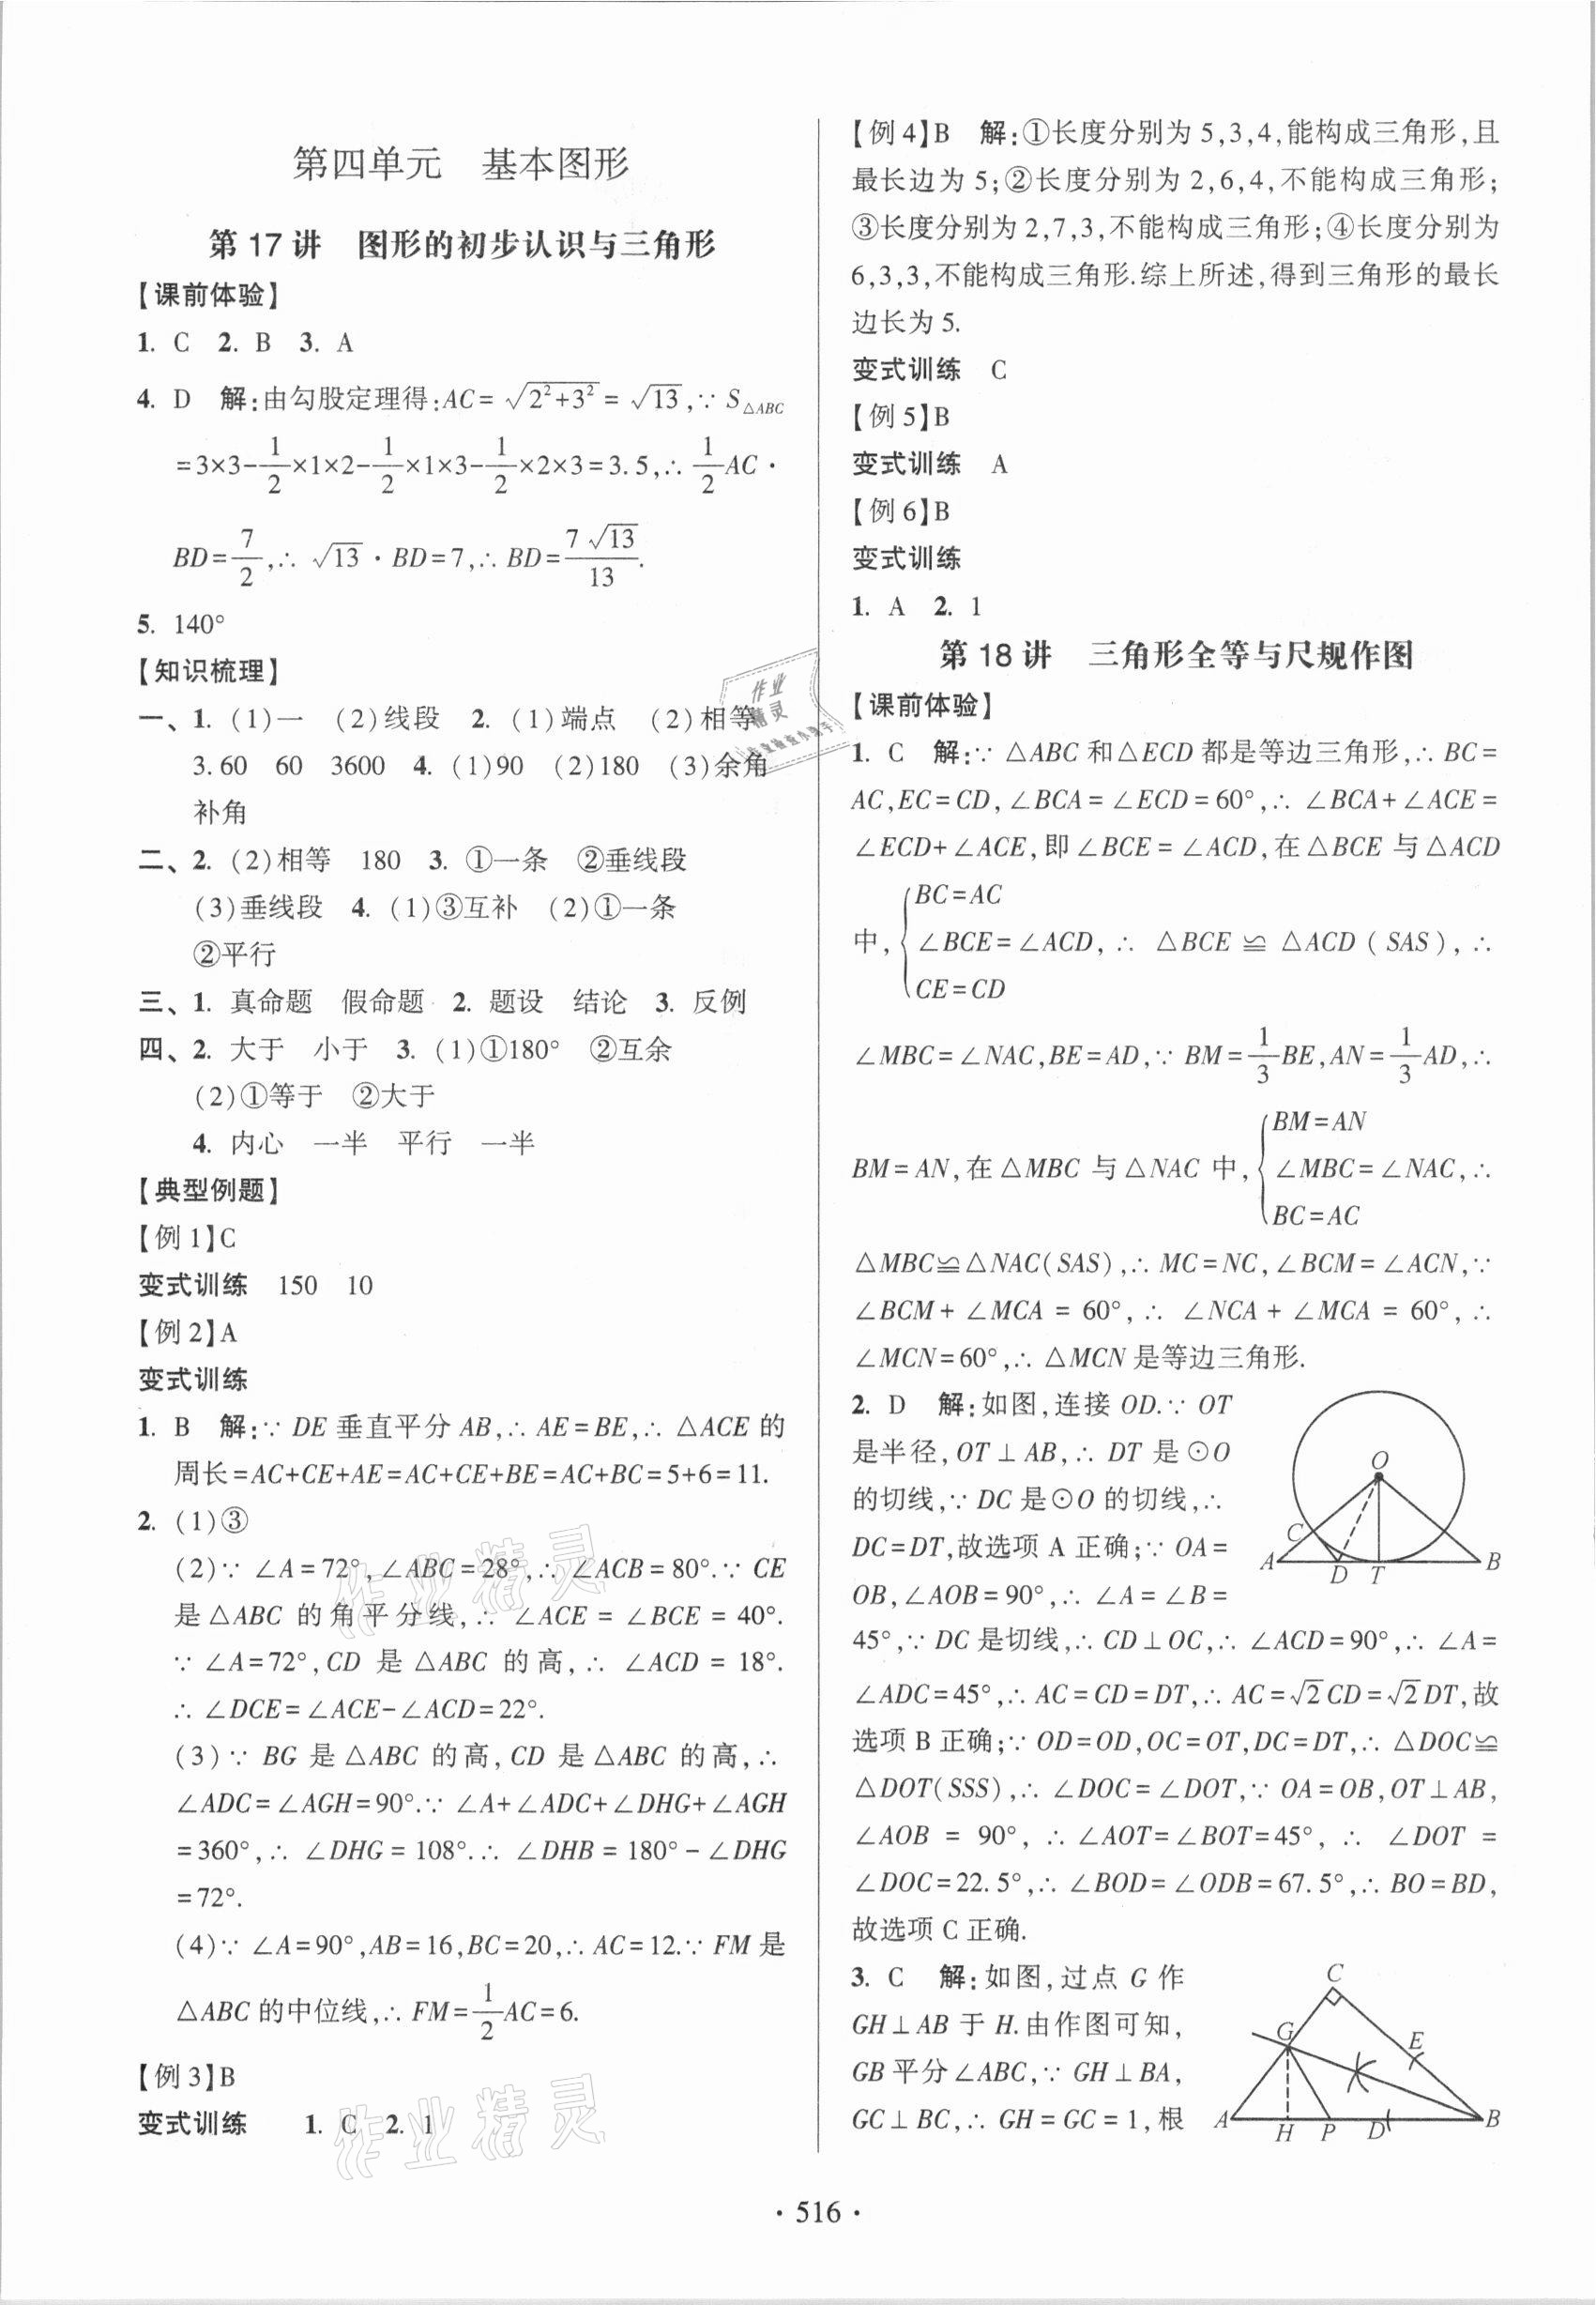 第四单元 基本图形
第 17 讲 图形的初步认识与三角形
【课前体验】
1. C 2. B 3. A
4. D 解:由勾股定理得:AC=√(2²+3²)=√13,∵ S△ABC
=3×3-1/2×1×2-1/2×1×3-1/2×2×3=3.5,∴ 1/2AC·
BD=7/2,∴ √13·BD=7,∴ BD=7√13/13.
5. 140°
【知识梳理】
一、1. (1)一 (2)线段 2. (1)端点 (2)相等
3.60 60 3600 4. (1)90 (2)180 (3)余角
补角
二、2. (2)相等 180 3. ①一条 ②垂线段
(3)垂线段 4. (1)③互补 (2)①一条
②平行
三、1. 真命题 假命题 2. 题设 结论 3. 反例
四、2. 大于 小于 3. (1)①180° ②互余
(2)①等于 ②大于
4. 内心 一半 平行 一半
【典型例题】
【例 1】C
变式训练 150 10
【例 2】A
变式训练
1. B 解:∵ DE 垂直平分 AB,∴ AE=BE,∴ △ACE 的
周长=AC+CE+AE=AC+CE+BE=AC+BC=5+6=11.
2. (1)③
(2)∵ ∠A=72°,∠ABC=28°,∴ ∠ACB=80°.∵ CE
是△ABC 的角平分线,∴ ∠ACE = ∠BCE = 40°.
∵ ∠A=72°,CD 是 △ABC 的高,∴ ∠ACD = 18°.
∴ ∠DCE=∠ACE-∠ACD=22°.
(3)∵ BG 是 △ABC 的高,CD 是 △ABC 的高,∴
∠ADC=∠AGH=90°.∵ ∠A+∠ADC+∠DHG+∠AGH
=360°,∴ ∠DHG = 108°.∴ ∠DHB = 180°-∠DHG
=72°.
(4)∵ ∠A=90°,AB=16,BC=20,∴ AC=12.∵ FM 是
△ABC 的中位线,∴ FM=1/2AC=6.
【例 3】B
变式训练 1. C 2. 1
【例 4】B 解:①长度分别为 5,3,4,能构成三角形,且
最长边为 5;②长度分别为 2,6,4,不能构成三角形;
③长度分别为 2,7,3,不能构成三角形;④长度分别为
6,3,3,不能构成三角形.综上所述,得到三角形的最长
边长为 5.
变式训练 C
【例 5】B
变式训练 A
【例 6】B
变式训练
1. A 2. 1
第 18 讲 三角形全等与尺规作图
【课前体验】
1. C 解:∵ △ABC 和△ECD 都是等边三角形,∴ BC=
AC,EC=CD,∠BCA=∠ECD=60°,∴ ∠BCA+∠ACE=
∠ECD+∠ACE,即∠BCE=∠ACD,在△BCE 与△ACD
BC=AC
中,{∠BCE=∠ACD, ∴ △BCE ≌ △ACD (SAS), ∴
CE=CD
∠MBC=∠NAC,BE=AD,∵ BM=1/3BE,AN=1/3AD,∴
BM=AN
BM=AN,在△MBC 与△NAC 中,{∠MBC=∠NAC,∴
BC=AC
△MBC≌△NAC(SAS),∴ MC=NC,∠BCM=∠ACN,∵
∠BCM+∠MCA = 60°, ∴ ∠NCA+∠MCA = 60°, ∴
∠MCN=60°,∴ △MCN 是等边三角形.
2. D 解:如图,连接 OD.∵ OT
是半径,OT⊥AB,∴ DT 是⊙O
的切线,∵ DC 是⊙O 的切线,∴
DC=DT,故选项 A 正确;∵ OA=
OB,∠AOB=90°,∴ ∠A=∠B=
45°,∵ DC 是切线,∴ CD⊥OC,∴ ∠ACD=90°,∴ ∠A=
∠ADC=45°,∴ AC=CD=DT,∴ AC=√2CD=√2DT,故
选项 B 正确;∵ OD=OD,OC=OT,DC=DT,∴ △DOC≌
△DOT(SSS),∴ ∠DOC=∠DOT,∵ OA=OB,OT⊥AB,
∠AOB = 90°, ∴ ∠AOT=∠BOT=45°, ∴ ∠DOT =
∠DOC=22.5°,∴ ∠BOD=∠ODB=67.5°,∴ BO=BD,
故选项 C 正确.
O
C
A
D T
B
3. C 解:如图,过点 G 作
GH⊥AB 于 H.由作图可知,
GB 平分∠ABC,∵ GH⊥BA,
GC⊥BC,∴ GH=GC=1,根
C
G
E
A
H P D
B
作业精灵
作业精灵
作业精灵
· 516 ·